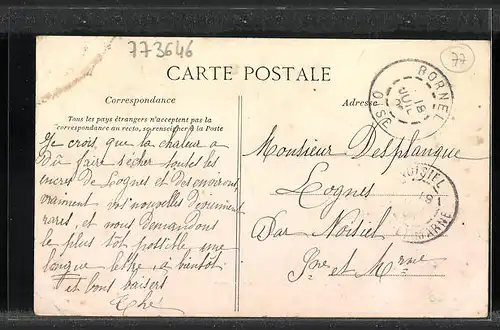 773646
77
CARTE POSTALE
Correspondance
Adresse
Tous les pays étrangers n'acceptent pas la
correspondance au recto, se renseigner à la Poste
BORNEL
18
JUIL
OISE
Je crois que la chaleur a
dû faire sécher toutes les
encres de Lognes et des environs
vraiment vos nouvelles deviennent
rares, et nous demandons
le plus tôt possible une
longue lettre, à bientôt
et bons baisers
Monsieur Desplanque
Lognes
Par Noisiel
Sne et Mrne
NOISIEL
18
MARNE